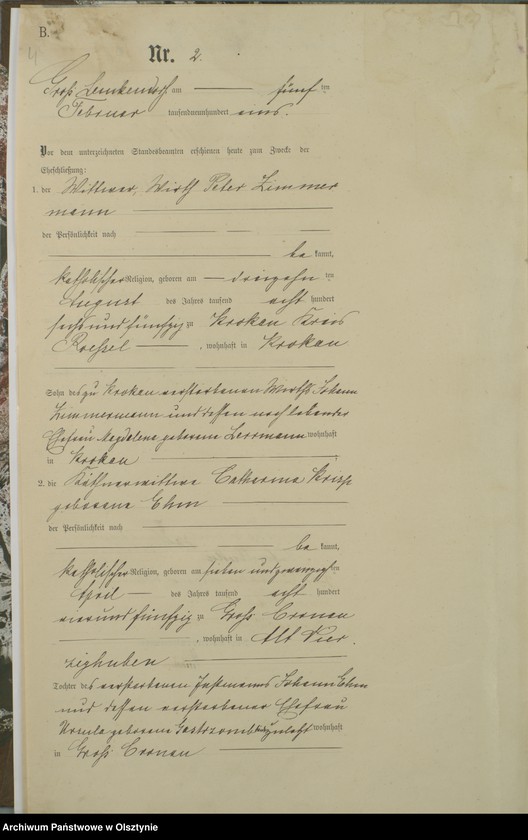 B.
Nr. 2.
Groß Lemkendorf am fünf ten
Februar tausendneunhundert eins.
Vor dem unterzeichneten Standesbeamten erschienen heute zum Zwecke der
Eheschließung:
1. der Wittwer, Wirth Peter Zimmer
mann
der Persönlichkeit nach
be kannt,
katholischer Religion, geboren am dreizehn ten
August des Jahres tausend acht hundert
sechs und fünfzig zu Krokau Kreis
Roessel , wohnhaft in Krokau
Sohn des zu Krokau verstorbenen Wirths Johann
Zimmermann und dessen noch lebender
Ehefrau Magdalene geborene Herrmann wohnhaft
in Krokau
2. die Käthnerwittwe Catharina
geborene Ehm
der Persönlichkeit nach
be kannt,
katholischer Religion, geboren am sieben und zwanzigsten
April des Jahres tausend acht hundert
vier und fünfzig zu Groß Cronau
, wohnhaft in Alt Vier
zighuben
Tochter des verstorbenen Instmanns Johann Ehm
und dessen verstorbener Ehefrau
Ursula geborene zuletzt wohnhaft
in Groß Cronau
Archiwum Państwowe w Olsztynie